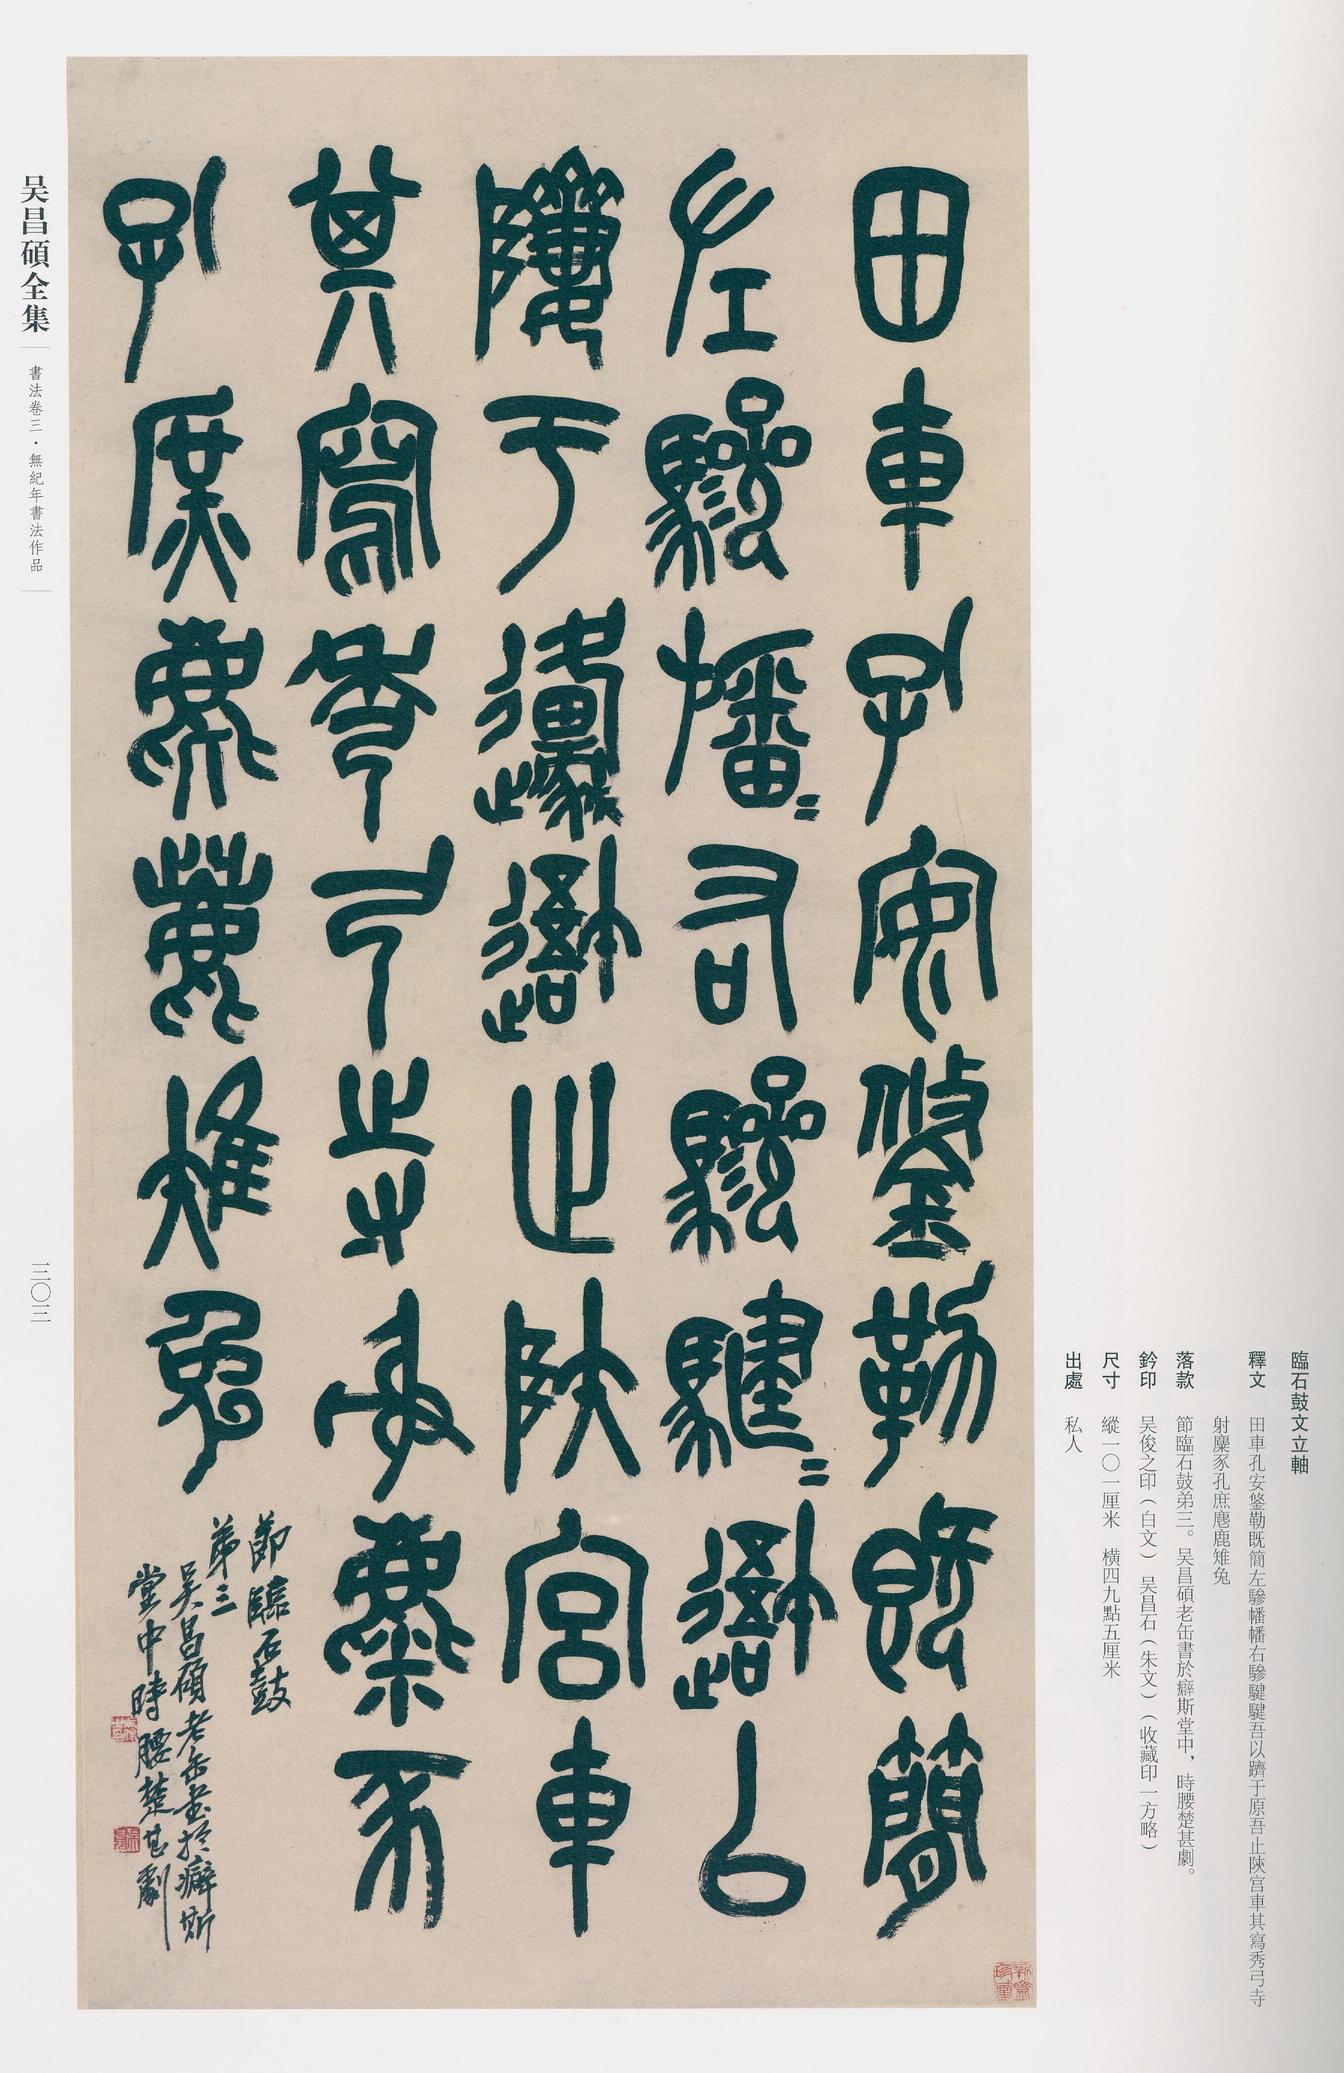 田車孔安鋚勒既簡
左驂幡〻右驂騝〻吾以
隮于原吾止陝宮車
其寫秀弓寺射麋豕
孔庶麀鹿雉兔
節臨石鼓
第三
吴昌碩老缶書於癖斯
堂中時腰楚甚劇
臨石鼓文立軸
釋文 田車孔安鋚勒既簡左驂幡幡右驂騝騝吾以隮于原吾止陝宮車其寫秀弓寺
射麋豕孔庶麀鹿雉兔
落款 節臨石鼓弟三。吴昌碩老缶書於癖斯堂中，時腰楚甚劇。
鈐印 吴俊之印（白文） 吴昌石（朱文）（收藏印一方略）
尺寸 縱一〇一厘米 橫四九點五厘米
出處 私人
吴昌碩全集
書法卷三·無紀年書法作品
三〇三